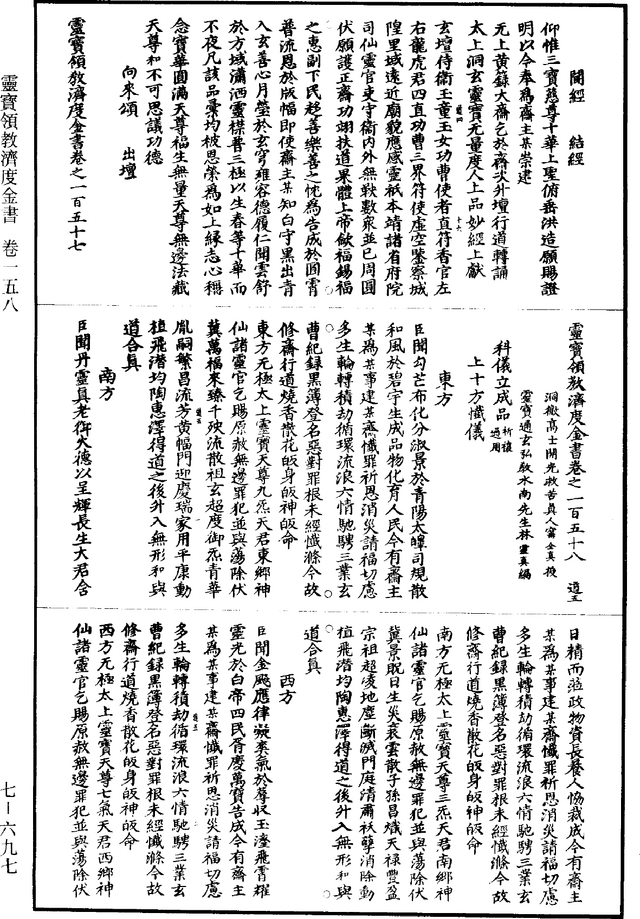 靈寶領教濟度金書 卷一五八
七－六九七
聞經 結經
仰惟三寶慈尊十華上聖俯垂洪造願賜證
明以今奉為齋主某崇建
无上黃籙大齋乞於齋次外壇行道轉誦
太上洞玄靈寶无量度人上品妙經上獻
玄壇侍衛玉童玉女功曹使者直符香官左
右龍虎君四直功曹三界符使虛空鑒察城
隍里域遠近廟貌應感靈祇本靖諸省府院
司仙靈官吏守衛內外無鞅數眾並已周圓
伏願護正齋功翊扶道果體上帝歛福錫福
之惠副下民趍善樂善之忱為告成於圜霄
普流恩於版幅即使齋主某知白守黑出青
入玄善心月瑩於玄穹雍容德履仁聞雲舒
於方域瀟洒靈襟普三極以生春等十華而
不夜凡該品彙均被恩榮為如上緣志心稱
念寶華圓滿天尊福生無量天尊無邊法藏
天尊和不可思議功德
向來頌 出壇
靈寶領教濟度金書卷之一百五十七
靈寶領教濟度金書卷之一百五十八 道五
洞微高士開光救苦真人甯全真授
靈寶通玄弘教水南先生林靈真編
科儀立成品 祈禳通用
上十方懺儀
東方
臣聞勾芒布化分淑景於青陽太皞司規散
和風於碧宇生成品物化育人民今有齋主
某為某事建某齋懺罪祈恩消災請福切慮
多生輪轉積劫循環流浪六情馳騁三業玄
曹紀錄黑簿登名惡對罪根未經懺滌今故
修齋行道燒香散花皈身皈神皈命
東方无極太上靈寶天尊九炁天君東鄉神
仙諸靈官乞賜原赦無邊罪犯並與蕩除伏
冀萬福來臻千殃流散祖玄超度御炁青華
胤嗣繁昌流芳黃幅門迎慶瑞家用平康動
植飛潛均陶惠澤得道之後升入無形和與
道合真
南方
臣聞丹靈真老御大德以呈輝長生大君含
日精而蒞政物資長養人協裁成今有齋主
某為某事建某齋懺罪祈恩消災請福切慮
多生輪轉積劫循環流浪六情馳騁三業玄
曹紀錄黑簿登名惡對罪根未經懺滌今故
修齋行道燒香散花皈身皈神皈命
南方无極太上靈寶天尊三炁天君南鄉神
仙諸靈官乞賜原赦無邊罪犯並與蕩除伏
冀景貺日生災衰雲散子孫昌熾天祿豐盈
宗祖超凌地塵斷滅門庭清肅袄孽消除動
植飛潛均陶惠澤得道之後升入無形和與
道合真
西方
臣聞金飈應律凝素氣於蓐収玉瀅飛霄耀
靈光於白帝四民胥慶萬寶告成今有齋主
某為某事建某齋懺罪祈恩消災請福切慮
多生輪轉積劫循環流浪六情馳騁三業玄
曹紀錄黑簿登名惡對罪根未經懺滌今故
修齋行道燒香散花皈身皈神皈命
西方无極太上靈寶天尊七氣天君西鄉神
仙諸靈官乞賜原赦無邊罪犯並與蕩除伏